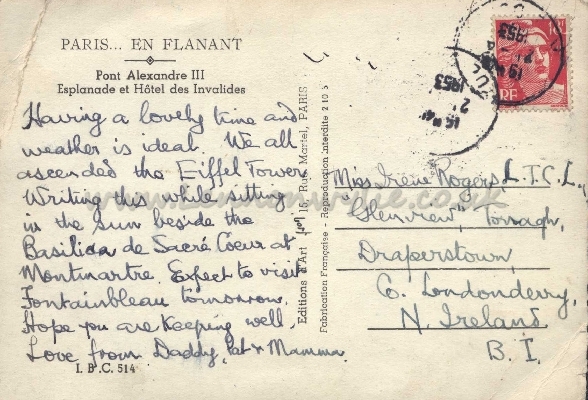 PARIS... EN FLANANT
Pont Alexandre III
Esplanade et Hôtel des Invalides
Having a lovely time and
weather is ideal. We all
ascended the Eiffel Tower
Writing this while sitting
in the sun beside the
Basilica de Sacré Coeur at
Montmartre. Expect to visit
Fontainbleau tomorrow.
Hope you are keeping well,
Love from Daddy, Pat & Mamma.
I.B.C. 514
Editions d'Art 15, Rue Martel, PARIS
Fabrication Française - Reproduction interdite 2 10 5
Miss Irene Rogers, L.T.C.L.,
"Glenview", Tonagh,
Draperstown
Co. Londonderry,
N. Ireland
B. I.
1953
1953
RF